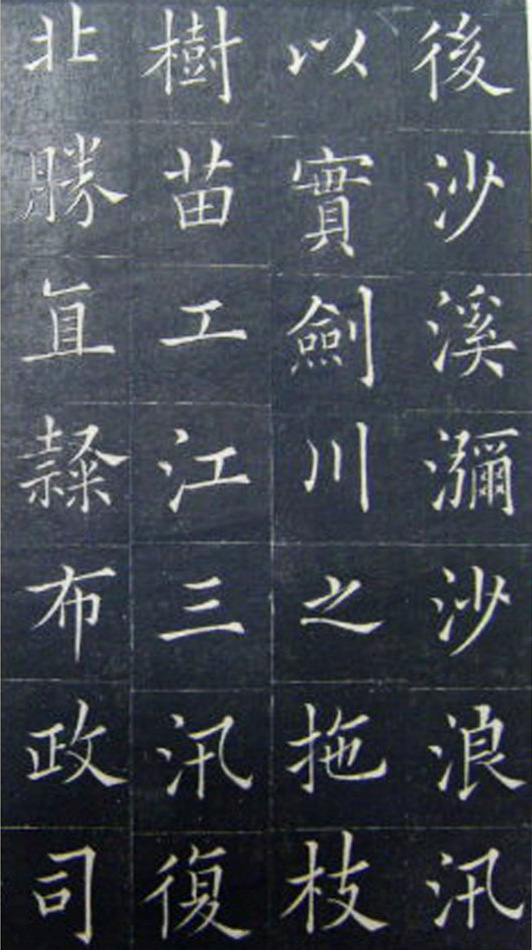 後沙溪瀰沙浪汛
以實劍川之拖枝
樹苗工江三汛復
北勝直隸布政司